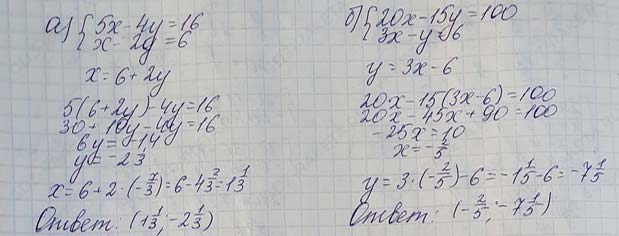 а) { 5x - 4y = 16
x - 2y = 6
x = 6 + 2y
5(6 + 2y) - 4y = 16
30 + 10y - 4y = 16
6y = -14
y = -2 1/3
x = 6 + 2 · (-7/3) = 6 - 4 2/3 = 1 1/3
Ответ: (1 1/3; -2 1/3)
б) { 20x - 15y = 100
3x - y = 6
y = 3x - 6
20x - 15(3x - 6) = 100
20x - 45x + 90 = 100
-25x = 10
x = -2/5
y = 3 · (-2/5) - 6 = -1 1/5 - 6 = -7 1/5
Ответ: (-2/5; -7 1/5)